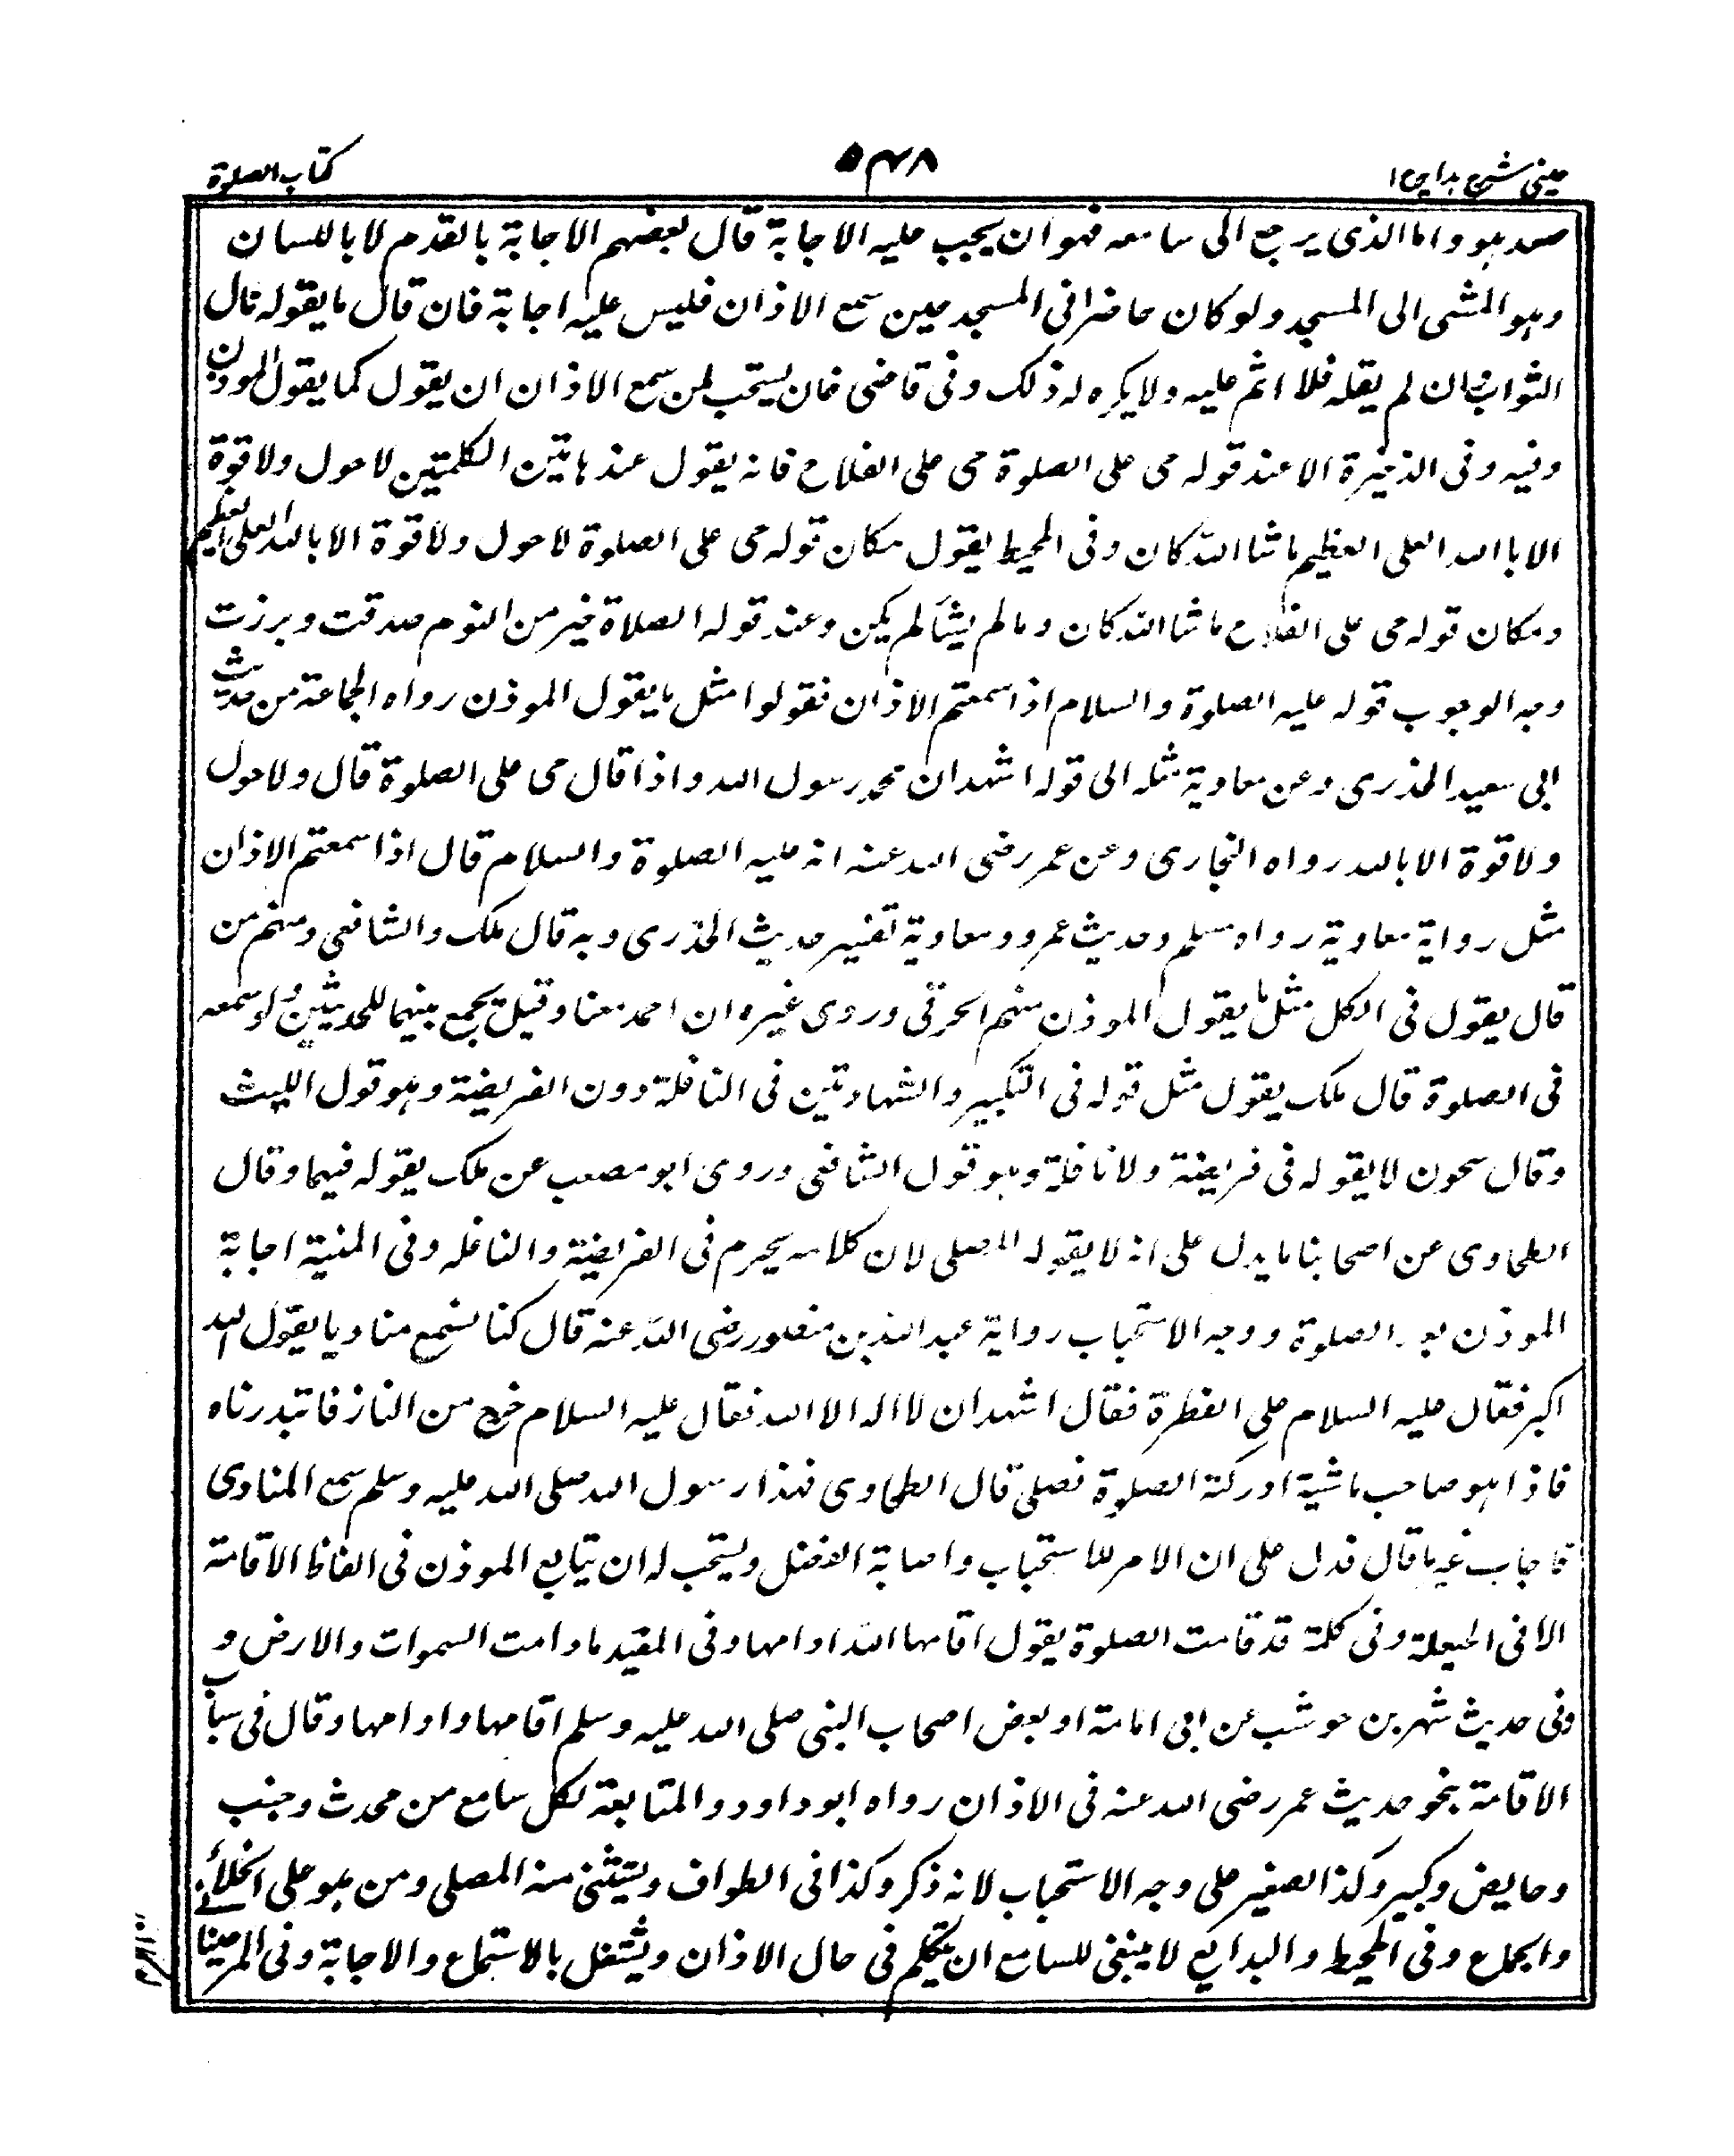 عینی شرح ہدایہ ج ۱
۵۴۸
کتاب الصلوة
صعد ہو واما الذی یرجع الی سامعہ فهوان یجب علیہ الاجابة قال بعضهم الاجابة بالقدم لا باللسان
وہو المشی الی المسجد ولو کان حاضرا فی المسجد حین سمع الاذان فلیس علیہ اجابة فان قال ما یقولہ نال
الثواب وان لم یقلہ فلا اثم علیہ ولا یکرہ لہ ذلک وفی قاضی خان یستحب لمن سمع الاذان ان یقول کما یقول الموذن
وفیہ وفی الذخیرة الا عند قولہ حی علی الصلوة حی علی الفلاح فانہ یقول عند ہاتین الکلمتین لا حول ولا قوة
الا باالله العلی العظیم ما شا الله کان وفی المحیط یقول مکان قولہ حی علی الصلوة لا حول ولا قوة الا بالله العلی العظیم
ومکان قولہ حی علی الفلاح ما شا الله کان وما لم یشأ لم یکن وعند قولہ الصلاة خیر من النوم صدقت وبرزت
وجہ الوجوب قولہ علیہ الصلوة والسلام اذا سمعتم الاذان فقولوا مثل ما یقول الموذن رواہ الجماعة من حدیث
ابی سعید الخذری وعن معاویة مثلہ الی قولہ اشهدان محمد رسول الله واذا قال حی علی الصلوة قال ولا حول
ولا قوة الا بالله رواہ البخاری وعن عمر رضی الله عنہ انہ علیہ الصلوة والسلام قال اذا سمعتم الاذان
مثل روایة معاویة رواہ مسلم وحدیث عمر ومعاویة تفسیر حدیث الخذری وبہ قال ملک والشافعی ومنهم من
قال یقول فی الکل مثل ما یقول الموذن منهم الخرقی وروی غیرہ ان احمد معنا وقیل یجمع بینهما للحدیثین ولو سمعہ
فی الصلوة قال ملک یقول مثل قولہ فی التکبیر والشهادتین فی النافلة دون الفریضة وہو قول اللیث
وقال سحون لا یقولہ فی فریضة ولا نافلة وہو قول الشافعی وروی ابو مصعب عن ملک یقولہ فیهما وقال
الطحاوی عن اصحابنا ما یدل علی انہ لا یقولہ المصلی لان کلامہ یحرم فی الفریضة والنافلہ وفی المنیة اجابة
الموذن بعد الصلوة ووجہ الاستحباب روایة عبد الله بن مسعود رضی الله عنہ قال کنا نسمع منادیا یقول الله
اکبر فقال علیہ السلام علی الفطرة فقال اشهدان لا الہ الا الله فقال علیہ السلام خرج من النار فابتدرناہ
فاذا ہو صاحب ماشیة ادرکتہ الصلوة فصلی قال الطحاوی فهذا رسول الله صلی الله علیہ وسلم سمع المنادی
فاجاب غیر ما قال فدل علی ان الامر للاستحباب واصابة الفضل ویستحب لہ ان یتابع الموذن فی الفاظ الاقامة
الا فی الحیعلة وفی کلمة قد قامت الصلوة یقول اقامها الله ادامها وفی المفید ما دامت السموات والارض و
وفی حدیث شهر بن حوشب عن ابی امامة او بعض اصحاب النبی صلی الله علیہ وسلم اقامها وادامها وقال فی سایر
الاقامة بنحو حدیث عمر رضی الله عنہ فی الاذان رواہ ابو داود والمتابعة لکل سامع من محدث وجنب
وحایض وکبیر وکذا الصغیر علی وجہ الاستحباب لانہ ذکر وکذا فی الطواف ویستثنی منہ المصلی ومن ہو علی الخلأ
والجماع وفی المحیط والبدایع لا ینبغی للسامع ان یتکلم فی حال الاذان ویشتغل بالاستماع والاجابة وفی المرغینا